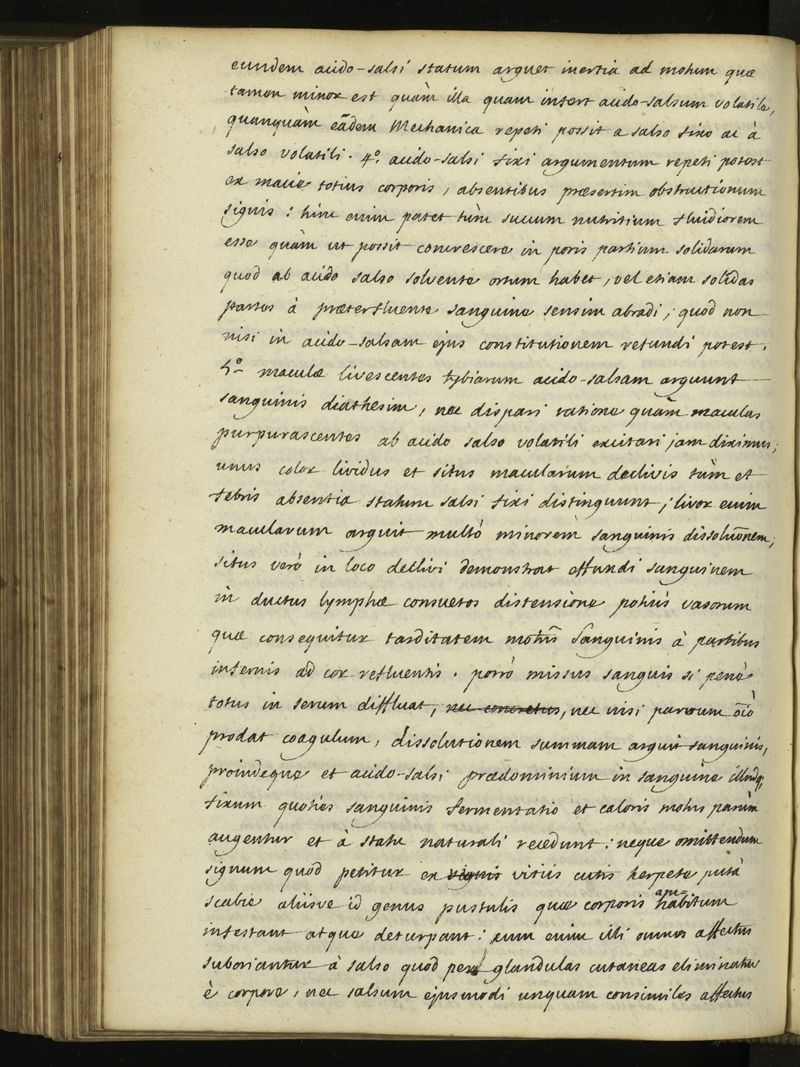 eundem acido-salsi statum arguet inertia ad motum quæ
tamen minor est quàm illa quam infert acido-salsum volatile,
quanquàm eãdem Mechanica repeti possit a salso fixo ac à
salso volatili. 4.º acido-salsi fixi argumentum repeti potest
ex macie totius corporis, absentibus præsertim obstructionum
signis: hinc enim patet tùm succum nutritium fluidiorem
esse quàm ut possit concrescere in poris partium solidarum
quod ab acido salso solvente ortum habet, vel etiam solidas
partes à præterfluente sanguine sensim abradi, quod non
nisi in acido-salsam ejus constitutionem refundi potest.
5.º maculæ livescentes tybiarum acido-salsam arguunt
sanguinis diathesim, nec dispari ratione quàm maculas
purpurascentes ab acido salso volatili excitari jam diximus;
unus color lividus et situs macularum declivis tùm et
febris absentia statum salsi fixi distinguunt; livor enim
macularum arguit multò minorem sanguinis dissoluõnem;
situs verò in loco declivi demonstrat effundi sanguinem
in ductus lymphæ consuetos distensione potiùs vasorum
quæ consequitur tarditatem motûs sanguinis à partibus
infernis ad cor refluentis. porrò missus sanguis si penè
totus in serum diffluat, nec concretus, nec nisi parvum õiò
prodat coagulum, dissolutionem summam arguit sanguinis,
proindeque et acido-salsi prædominium in sanguine illudq;
fixum quoties sanguinis fermentatio et caloris motus parùm
augentur et à statu naturali recedunt: neque omittendum
signum quod petitur ex signis vitiis cutis herpete putà
scabie aliisve id genus pustulis quæ corporis habitum
infestant atque deturpant: cum enim illi omnes affectus
suboriantur à salso quod per glandulas cutaneas eliminatur
è corpore, nec salsum ejusmodi unquam consimiles affectus